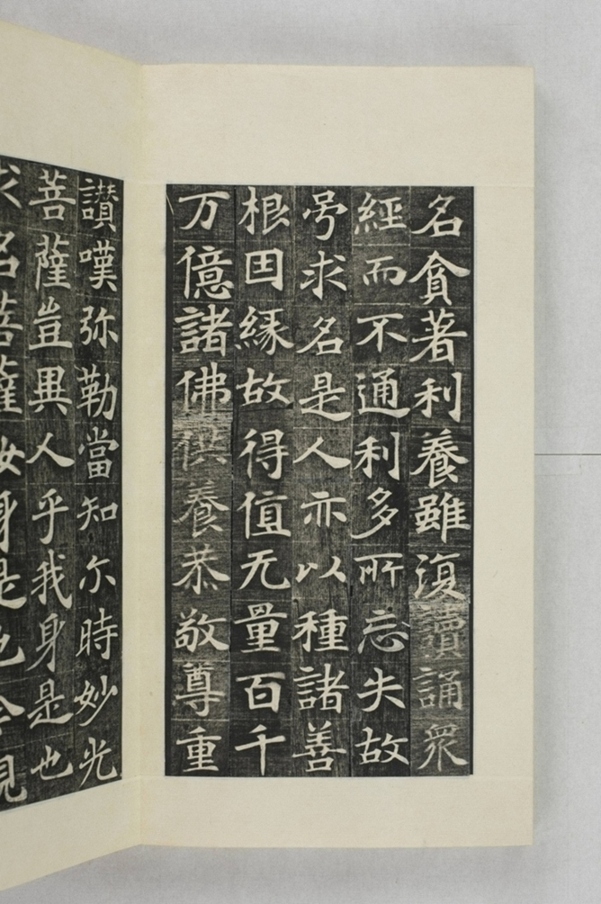 名貪著利養雖復讀誦衆
經而不通利多所忘失故
号求名是人亦以種諸善
根因緣故得值无量百千
万億諸佛供養恭敬尊重
讃嘆弥勒當知尒時妙光
菩薩豈異人乎我身是也
求名菩薩汝身是也今見